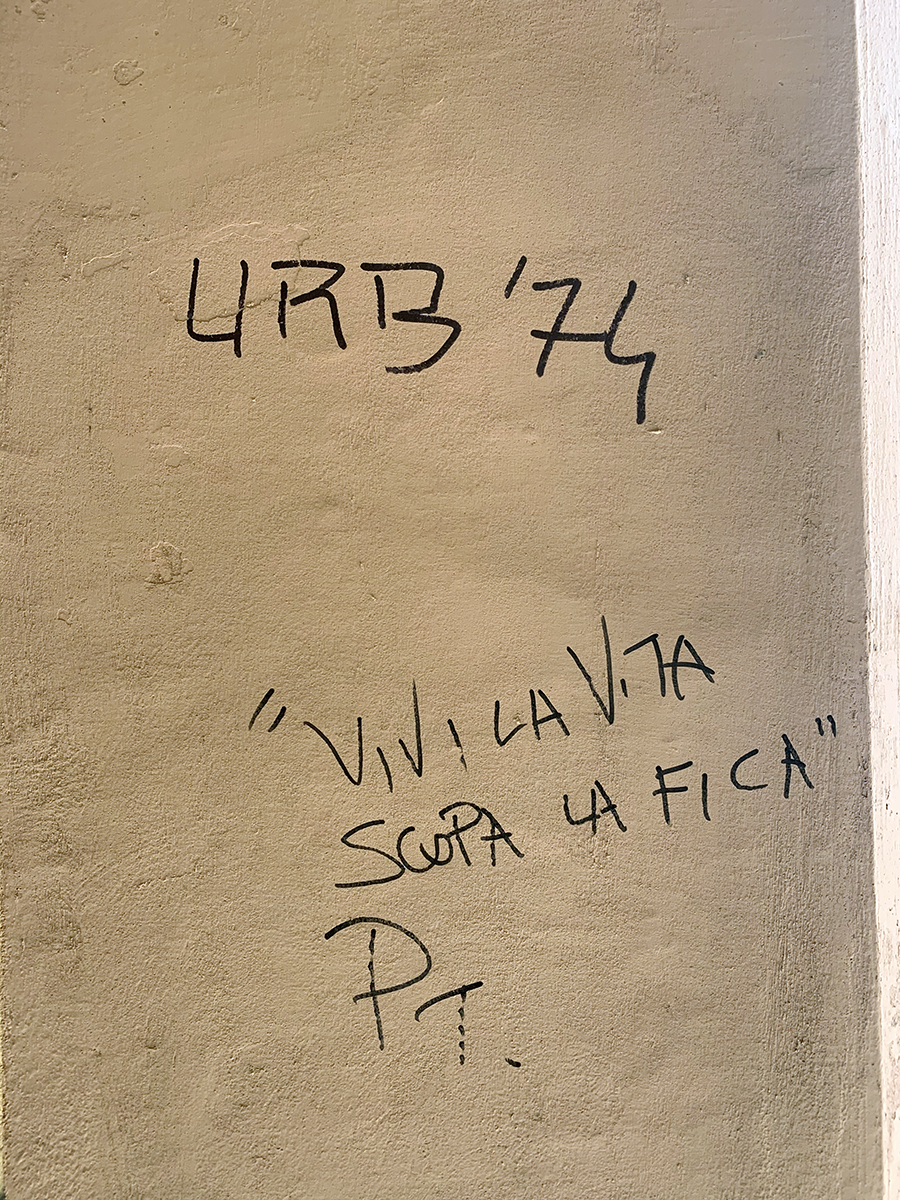 URB '74
"VIVI LA VITA
SCOPA LA FICA"
PT.